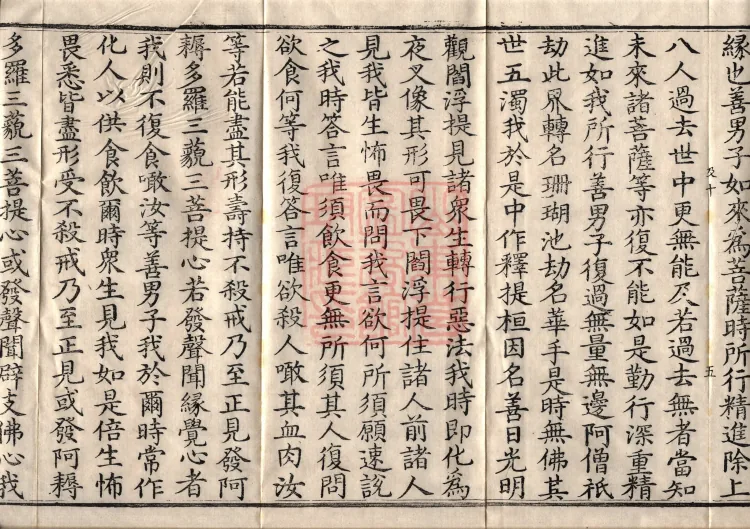 緣也善男子如來為菩薩時所行精進除上
及十 五
八人過去世中更無能及若過去無者當知
未來諸菩薩等亦復不能如是勤行深重精
進如我所行善男子復過無量無邊阿僧祇
劫此界轉名珊瑚池劫名華手是時無佛其
世五濁我於是中作釋提桓因名善日光明
觀閻浮提見諸眾生轉行惡法我時即化為
夜叉像其形可畏下閻浮提住諸人前諸人
見我皆生怖畏而問我言欲何所須願速說
之我時答言唯須飲食更無所須其人復問
欲食何等我復答言唯欲殺人噉其血肉汝
等若能盡其形壽持不殺戒乃至正見發阿
耨多羅三藐三菩提心若發聲聞緣覺心者
我則不復食噉汝等善男子我於爾時常作
化人以供食飲爾時眾生見我如是倍生怖
畏悉皆盡形受不殺戒乃至正見或發阿耨
多羅三藐三菩提心或發聲聞辟支佛心我